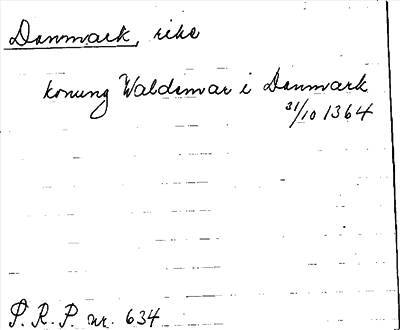 Danmark, rike
konung Waldemar i Danmark
31/10 1364
P. R. P. nr. 634